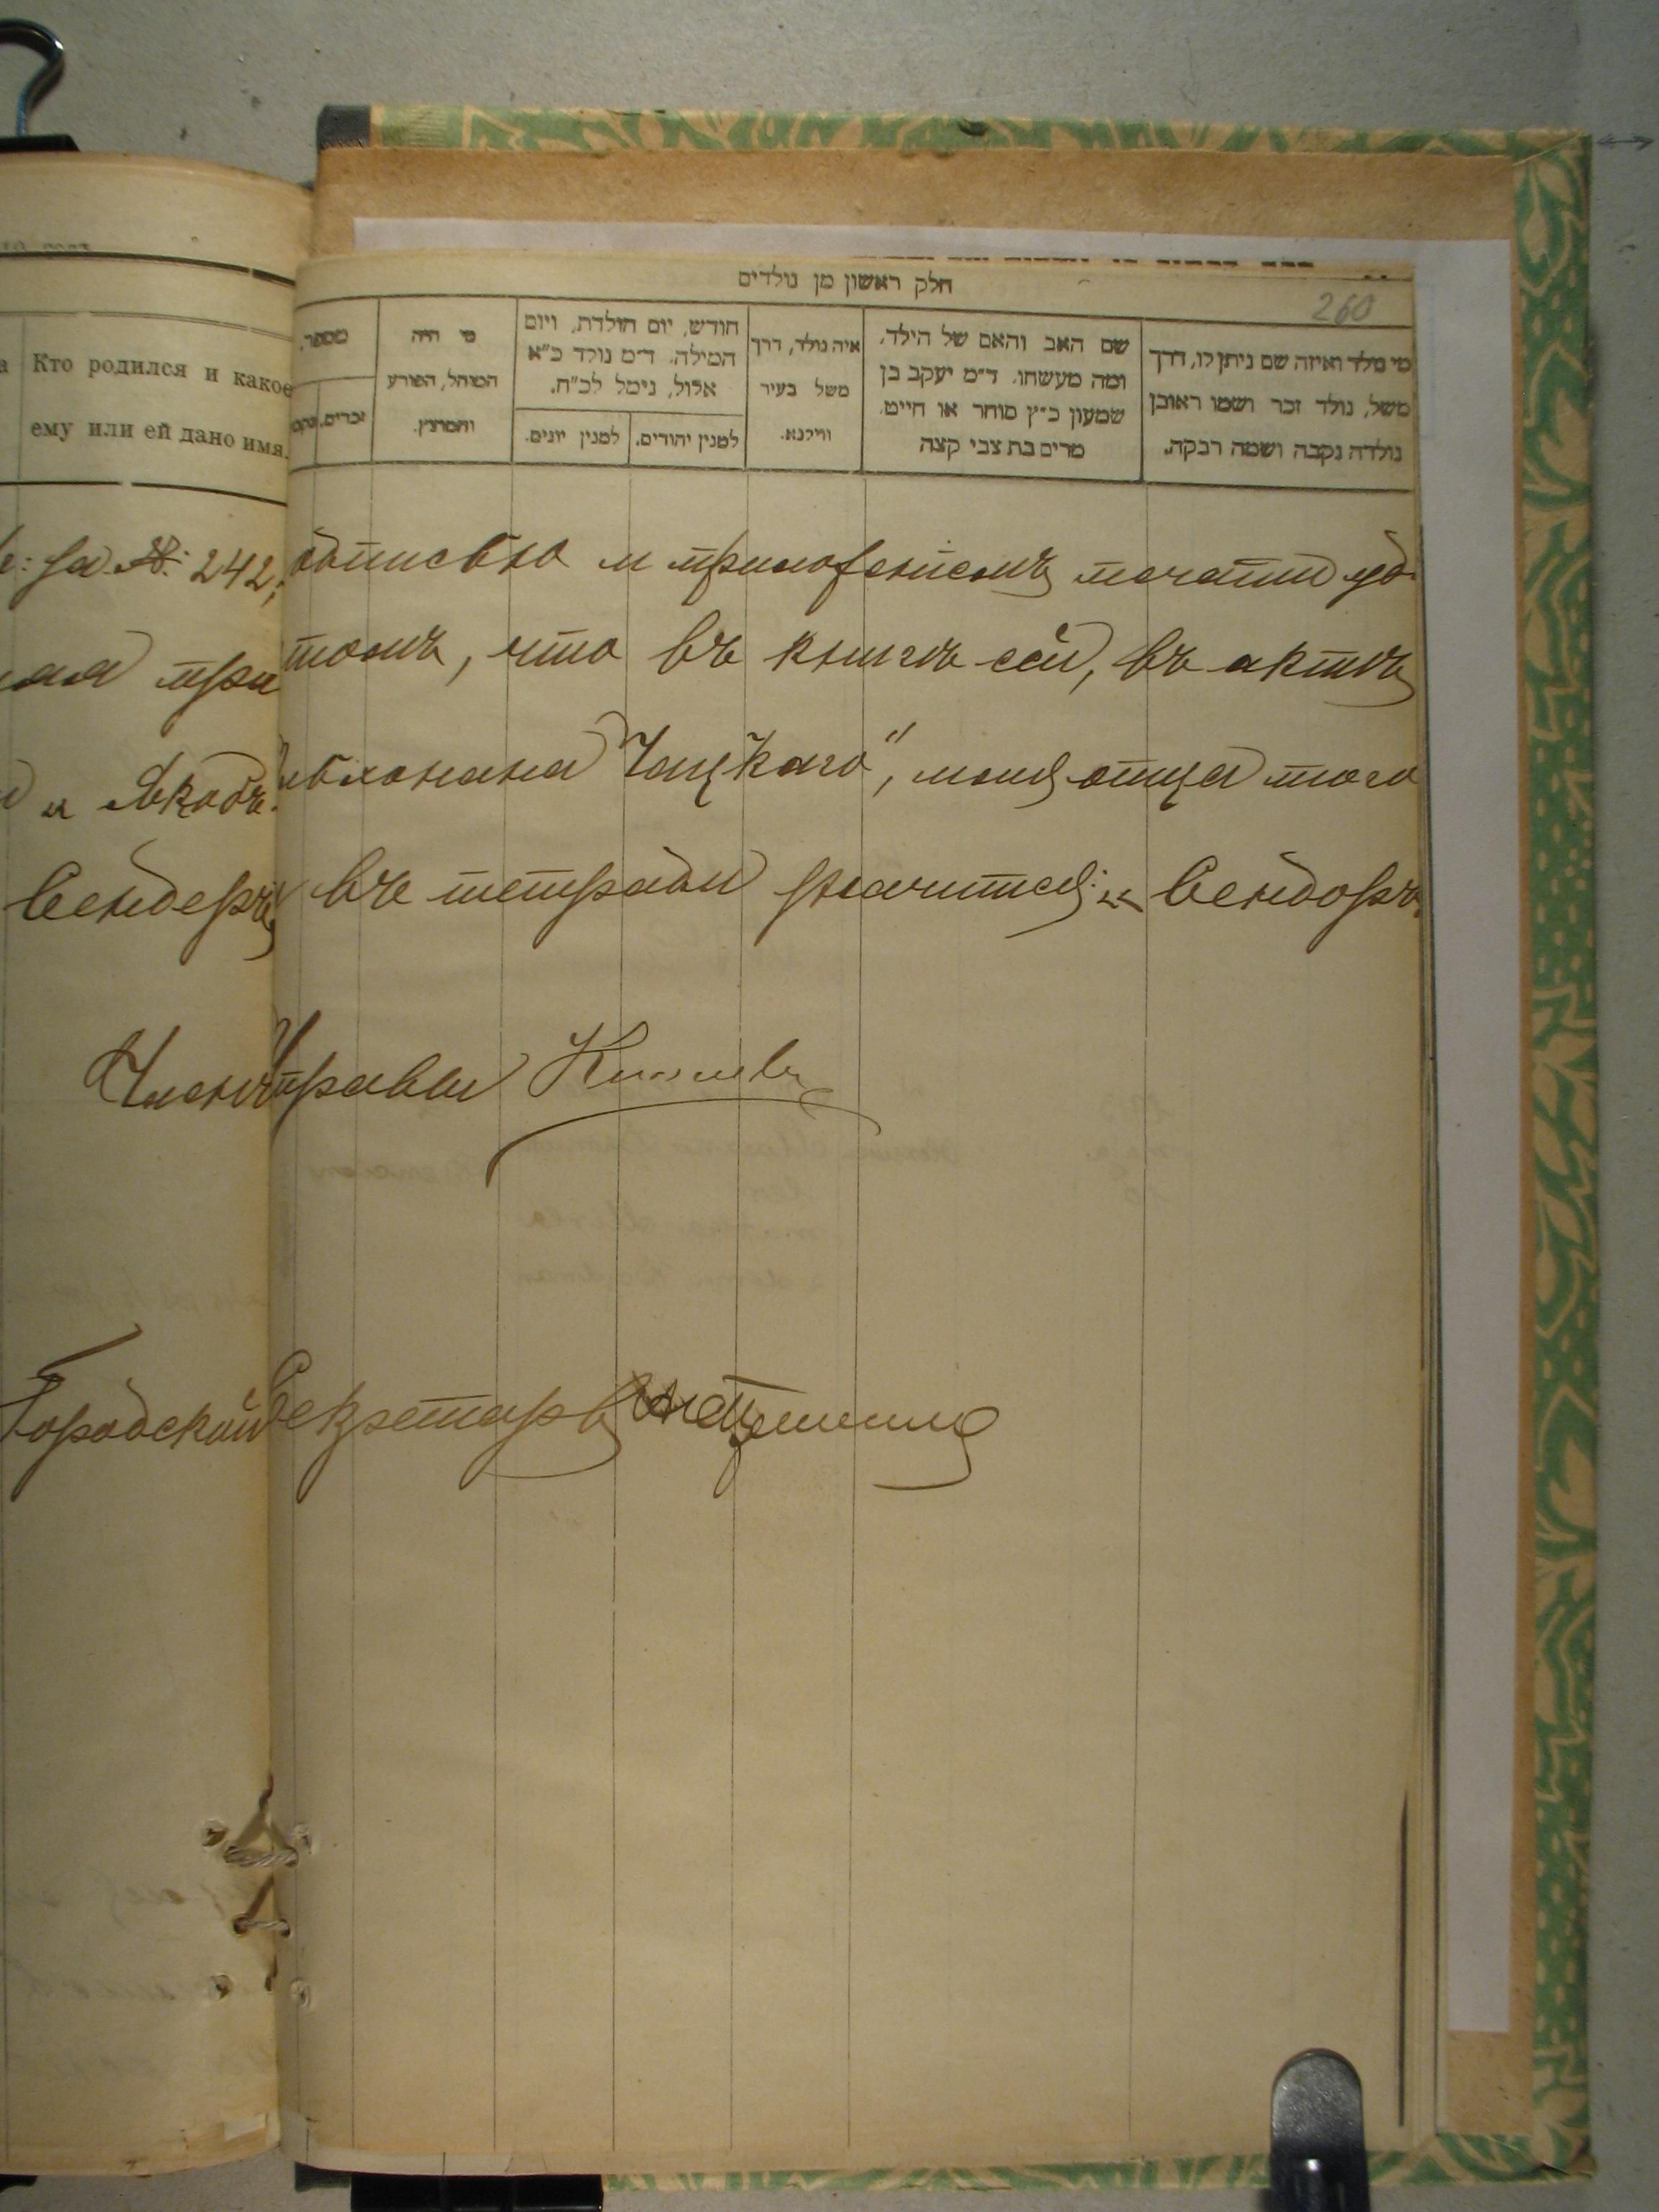 Кто родился и какое
ему или ей дано имя.
חלק ראשון מן נולדים
260
מספר,
זכרים.
מי היה
המוהל, הפורע
והמוצץ.
חודש, יום הולדת, ויום
המילה. ד״מ נולד כ״א
אלול, נימל לכ״ח.
למנין יהודים.
למנין יונים.
איה נולד, דרך
משל בעיר
ווילנא.
שם האב והאם של הילד,
ומה מעשהו. ד״מ יעקב בן
שמעון כ״ץ סוחר או חייט.
מרים בת צבי קצה
מי נולד ואיזה שם ניתן לו, דרך
משל, נולד זכר ושמו ראובן
נולדה נקבה ושמה רבקה.
за №: 242, подписью и приложеніемъ печати удо
томъ, что въ книгѣ сей, въ актѣ
и Якобъ Чацкаго", имя отца того
Сендеръ въ тетради значится: „Сендоръ
Членъ Управы
Городской Секретарь